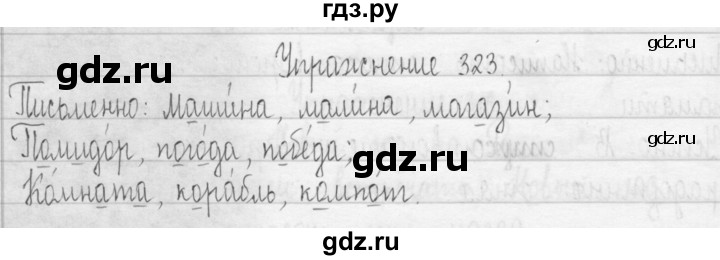 гдз.ру
gdz.ru gdz.ru
Упражнение 323
gdz.ru
Письменно: Машина, малина, магазин;
gdz.ru
Помидор, погода, победа;
gdz.ru
Комната, корабль, компот.
gdz.ru gdz.ru